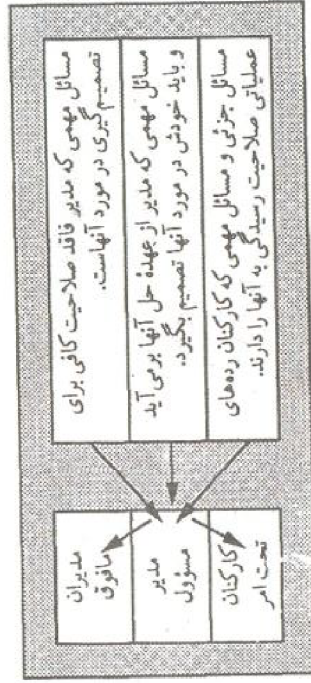 مسائل مهمی که مدیر فاقد صلاحیت کافی برای
تصمیم‌گیری در مورد آنهاست.
مسائل مهمی که مدیر از عهدهٔ حل آنها برمی‌آید
و باید خودش در مورد آنها تصمیم بگیرد.
مسائل جزئی و مسائل مهمی که کارکنان رده‌های
عملیاتی صلاحیت رسیدگی به آنها را دارند.
مدیران
مافوق
مدیر
مسؤول
کارکنان
تحت امر